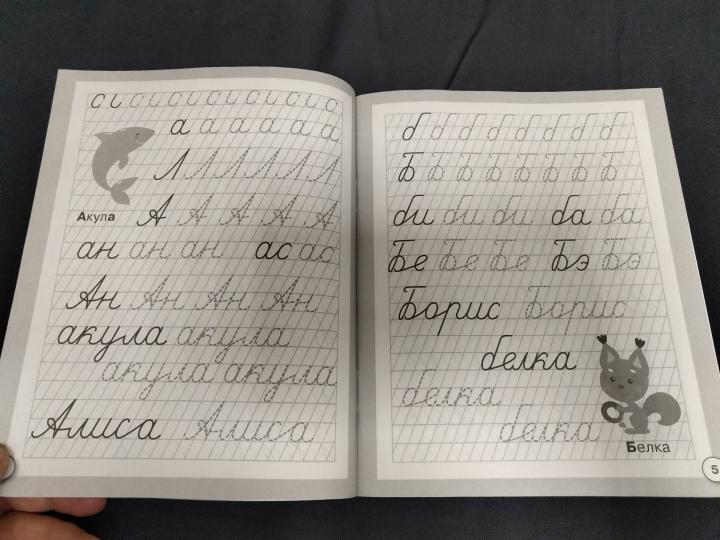 а а а а а а
Л Л Л Л Л Л
Акула
А А А А А
ан ан ан ас ас
Ан Ан Ан Ан
акула акула
акула акула
Алиса Алиса
б б б б б б б б
Б Б Б Б Б Б Б Б
би би би ба ба
Бе Бе Бе Бэ Бэ
Борис Борис
белка
белка
белка
Белка
5